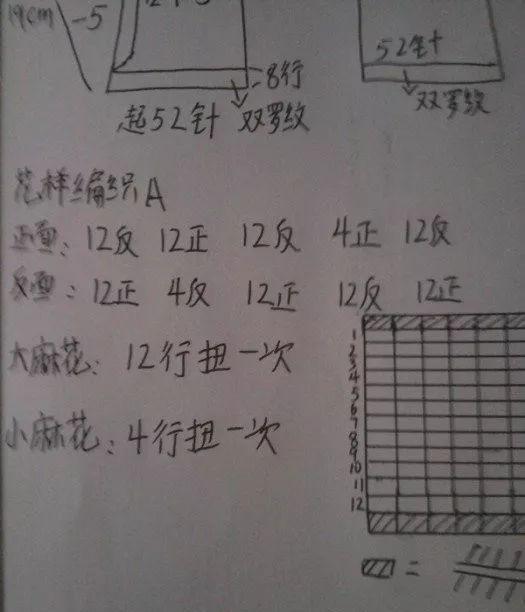 19cm -5
8行
起52针 双罗纹
52针
双罗纹
花样编织A
正面：12反 12正 12反 4正 12反
反面：12正 4反 12正 12反 12正
大麻花：12行扭一次
小麻花：4行扭一次
1
2
3
4
5
6
7
8
9
10
11
12
=